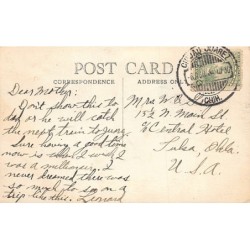 POST CARD
CORRESPONDENCE
ADDRESS
CIUDAD JUAREZ
CHIH.
Dear Mother:
Don't show this to
dad or he will catch
the next train to Juarez.
Sure having a good time
now is when I wish I
was a millionair. I
never dreamed there was
so much to see on a
trip like this. Lenord
Mrs W.
15½ N. Main St
% Central Hotel
Tulsa, Okla.
U.S.A.